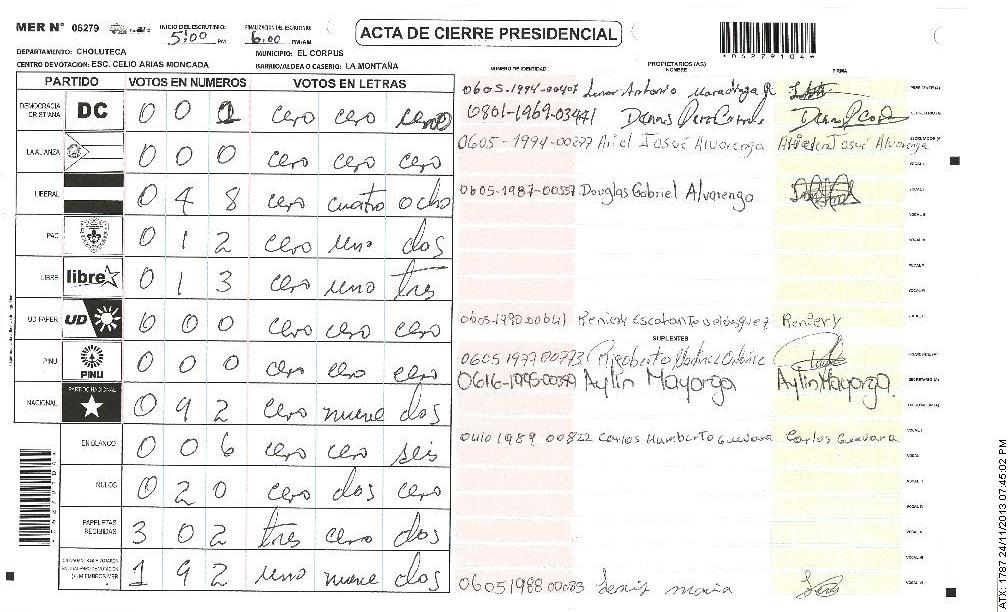 MER N° 06279
INICIO DEL ESCRUTINIO: 5:00 PM
FINALIZACION DEL ESCRUTINIO: 6:00 PM/AM
ACTA DE CIERRE PRESIDENCIAL
DEPARTAMENTO: CHOLUTECA
MUNICIPIO: EL CORPUS
CENTRO DE VOTACION: ESC. CELIO ARIAS MONCADA
BARRIO/ALDEA O CASERIO: LA MONTAÑA
*06279104*
PARTIDO VOTOS EN NUMEROS VOTOS EN LETRAS
DEMOCRACIA CRISTIANA DC 0 0 cero cero
LA ALIANZA 0 0 0 cero cero cero
LIBERAL 0 4 8 cero cuatro ocho
PAC 0 1 2 cero uno dos
LIBRE libre 0 1 3 cero uno tres
UD-FAPER UD 0 0 0 cero cero cero
PINU PINU 0 0 0 cero cero cero
NACIONAL PARTIDO NACIONAL 0 9 2 cero nueve dos
EN BLANCO 0 0 6 cero cero seis
NULOS 0 2 0 cero dos cero
PAPELETAS RECIBIDAS 3 0 2 tres cero dos
1 9 2 uno nueve dos
NUMERO DE IDENTIDAD
PROPIETARIOS (AS)
NOMBRE
FIRMA
0605-1994-00407 Antonio
PRESIDENTE (A)
0801-1969-03441
SECRETARIO (A)
0605-1994-00277 Ariel Josué Alvarenga
ESCRUTADOR (A)
VOCAL I
0605-1987-00557 Douglas Gabriel Alvarenga
VOCAL II
VOCAL III
VOCAL IV
VOCAL V
Reniery
SUPLENTES
PRESIDENTE (A)
0616-1995-00359 Aylin Mayorga Aylin Mayorga
SECRETARIO (A)
ESCRUTADOR (A)
1989 00822 Carlos Humberto Guevara Carlos Guevara
VOCAL I
06051988 00083 maria
ATX: 1787 24/11/2013 07:45:02 PM